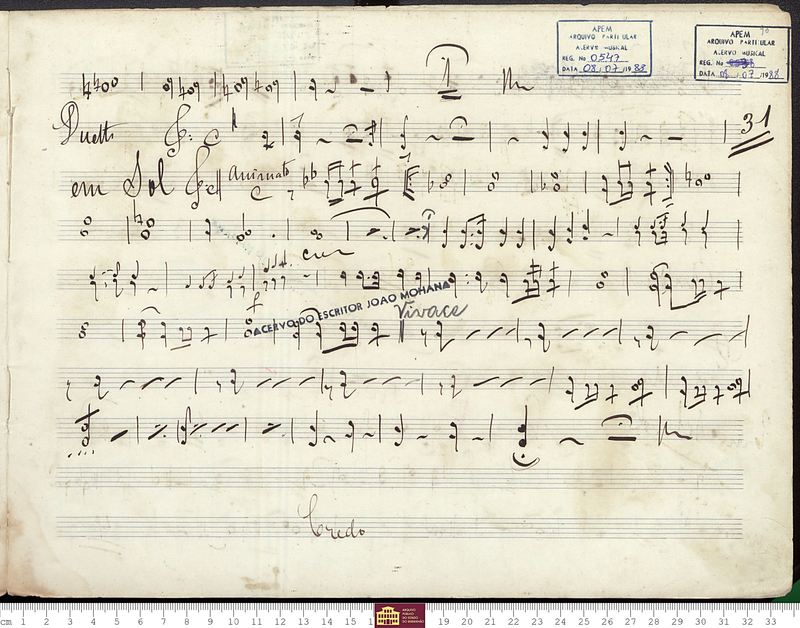 APEM
ARQUIVO PARTICULAR
ACERVO MUSICAL
REG. No 0547
DATA 08 / 07 / 1988
APEM
ARQUIVO PARTICULAR
ACERVO MUSICAL
REG. No
DATA 08 / 07 / 1988
1
Duetto
31
em Sol
Animato
ACERVO DO ESCRITOR JOÃO MOHANA
Vivace
Credo
cm 1 2 3 4 5 6 7 8 9 10 11 12 13 14 15 16 19 20 21 22 23 24 25 26 27 28 29 30 31 32 33